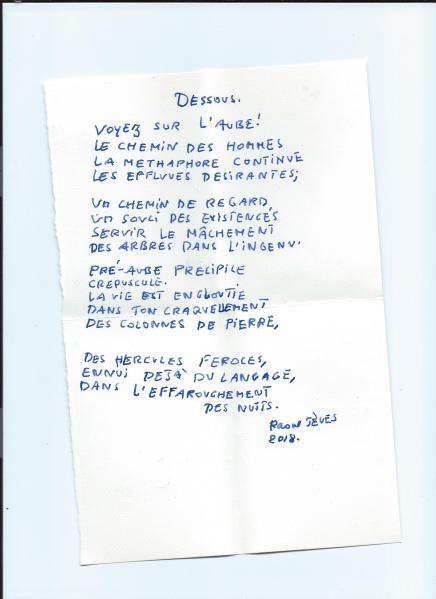 DESSOUS.
VOYEZ SUR L'AUBE!
LE CHEMIN DES HOMMES
LA METHAPHORE CONTINUE
LES EFFLUVES DESIRANTES;
UN CHEMIN DE REGARD,
UN SOUCI DES EXISTENCES
SERVIR LE MÂCHEMENT
DES ARBRES DANS L'INGENU.
PRÉ-AUBE PRECIPILE
CREPUSCULE.
LA VIE EST ENGLOUTIE
DANS TON CRAQUELLEMENT
DES COLONNES DE PIERRE,
DES HERCULES FEROCES,
ENNUI DEJÀ DU LANGAGE,
DANS L'EFFAROUCHEMENT
DES NUITS.
2018.